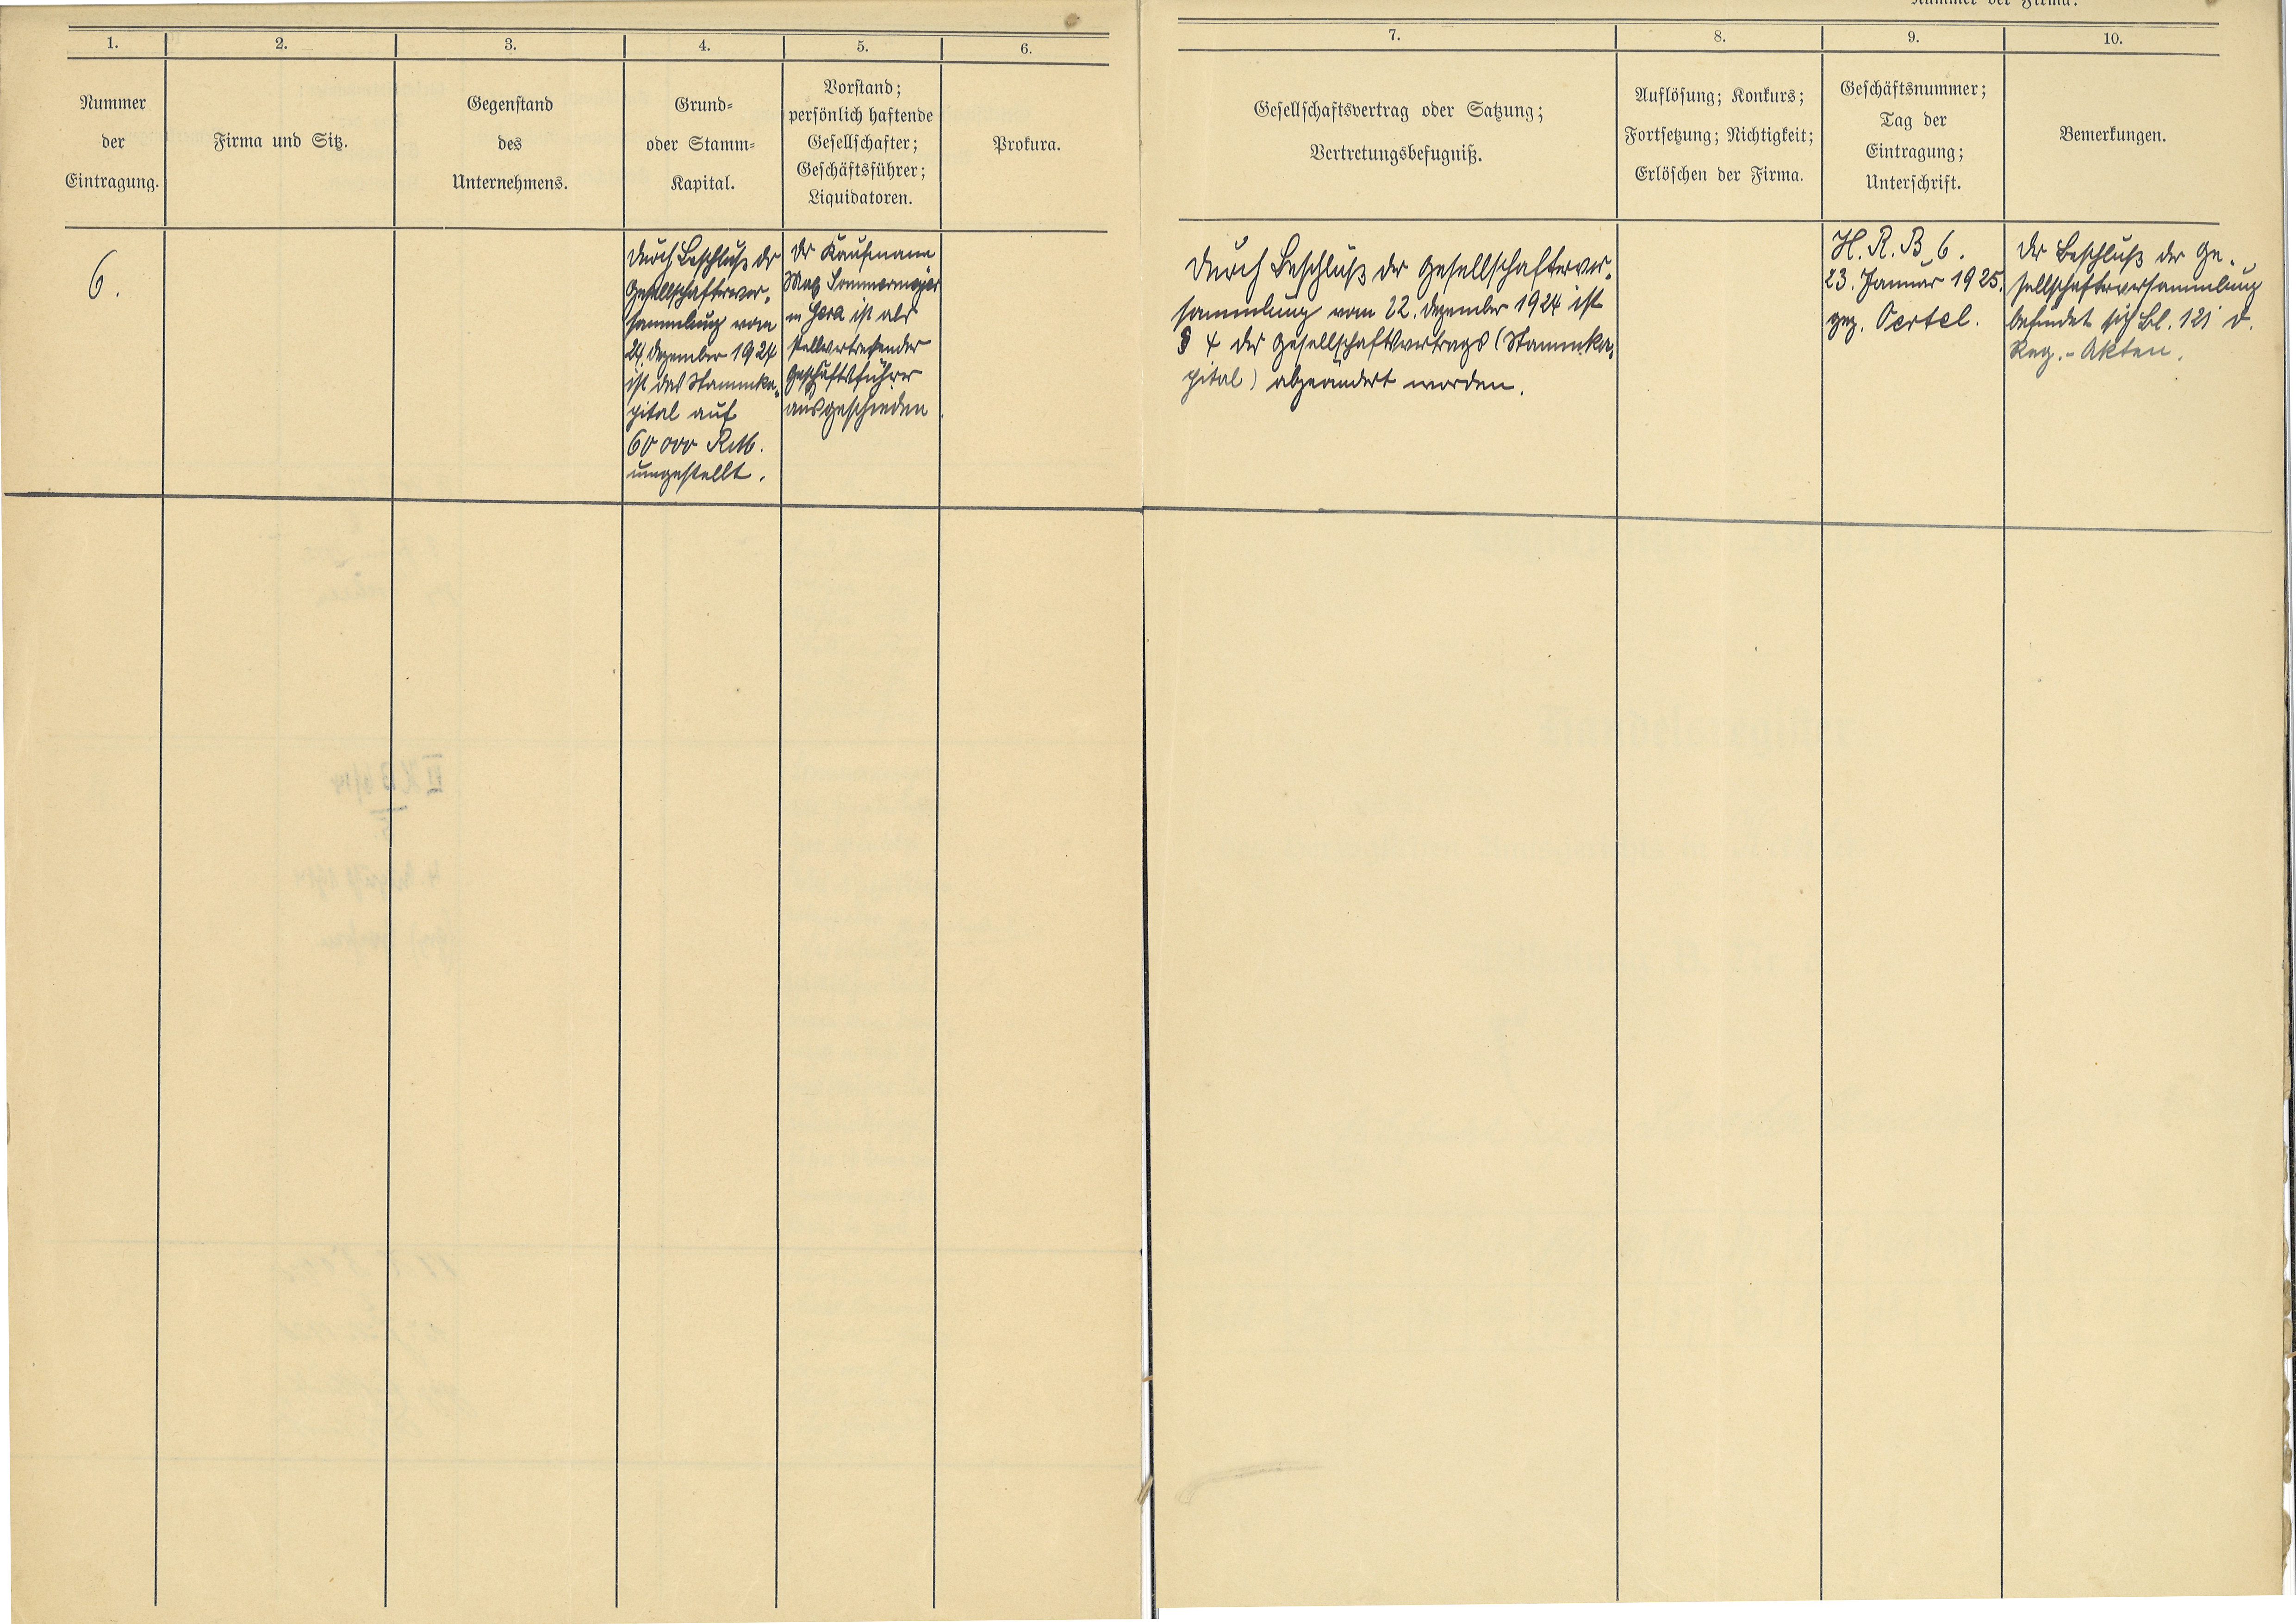 Nummer der Firma:
1.
2.
3.
4.
5.
6.
7.
8.
9.
10.
Nummer
der
Eintragung.
Firma und Sitz.
Gegenstand
des
Unternehmens.
Grund-
oder Stamm-
Kapital.
Vorstand;
persönlich haftende
Gesellschafter;
Geschäftsführer;
Liquidatoren.
Prokura.
Gesellschaftsvertrag oder Satzung;
Vertretungsbefugniß.
Auflösung; Konkurs;
Fortsetzung; Nichtigkeit;
Erlöschen der Firma.
Geschäftsnummer;
Tag der
Eintragung;
Unterschrift.
Bemerkungen.
6.
Durch Beschluß der
Gesellschafterver-
sammlung vom
24. Dezember 1924
ist das Stammka-
pital auf
60 000 RM.
umgestellt.
Der Kaufmann
Max Sommermeyer
in Gera ist als
stellvertretender
Geschäftsführer
ausgeschieden
Durch Beschluß der Gesellschafterver-
sammlung vom 22. Dezember 1924 ist
§ 4 des Gesellschaftsvertrags (Stammka-
pital) abgeändert worden.
H. R. B 6.
23. Januar 1925.
gez. Oertel.
Der Beschluß der Ge-
sellschafterversammlung
befindet sich Bl. 121 d.
Reg.-Akten.